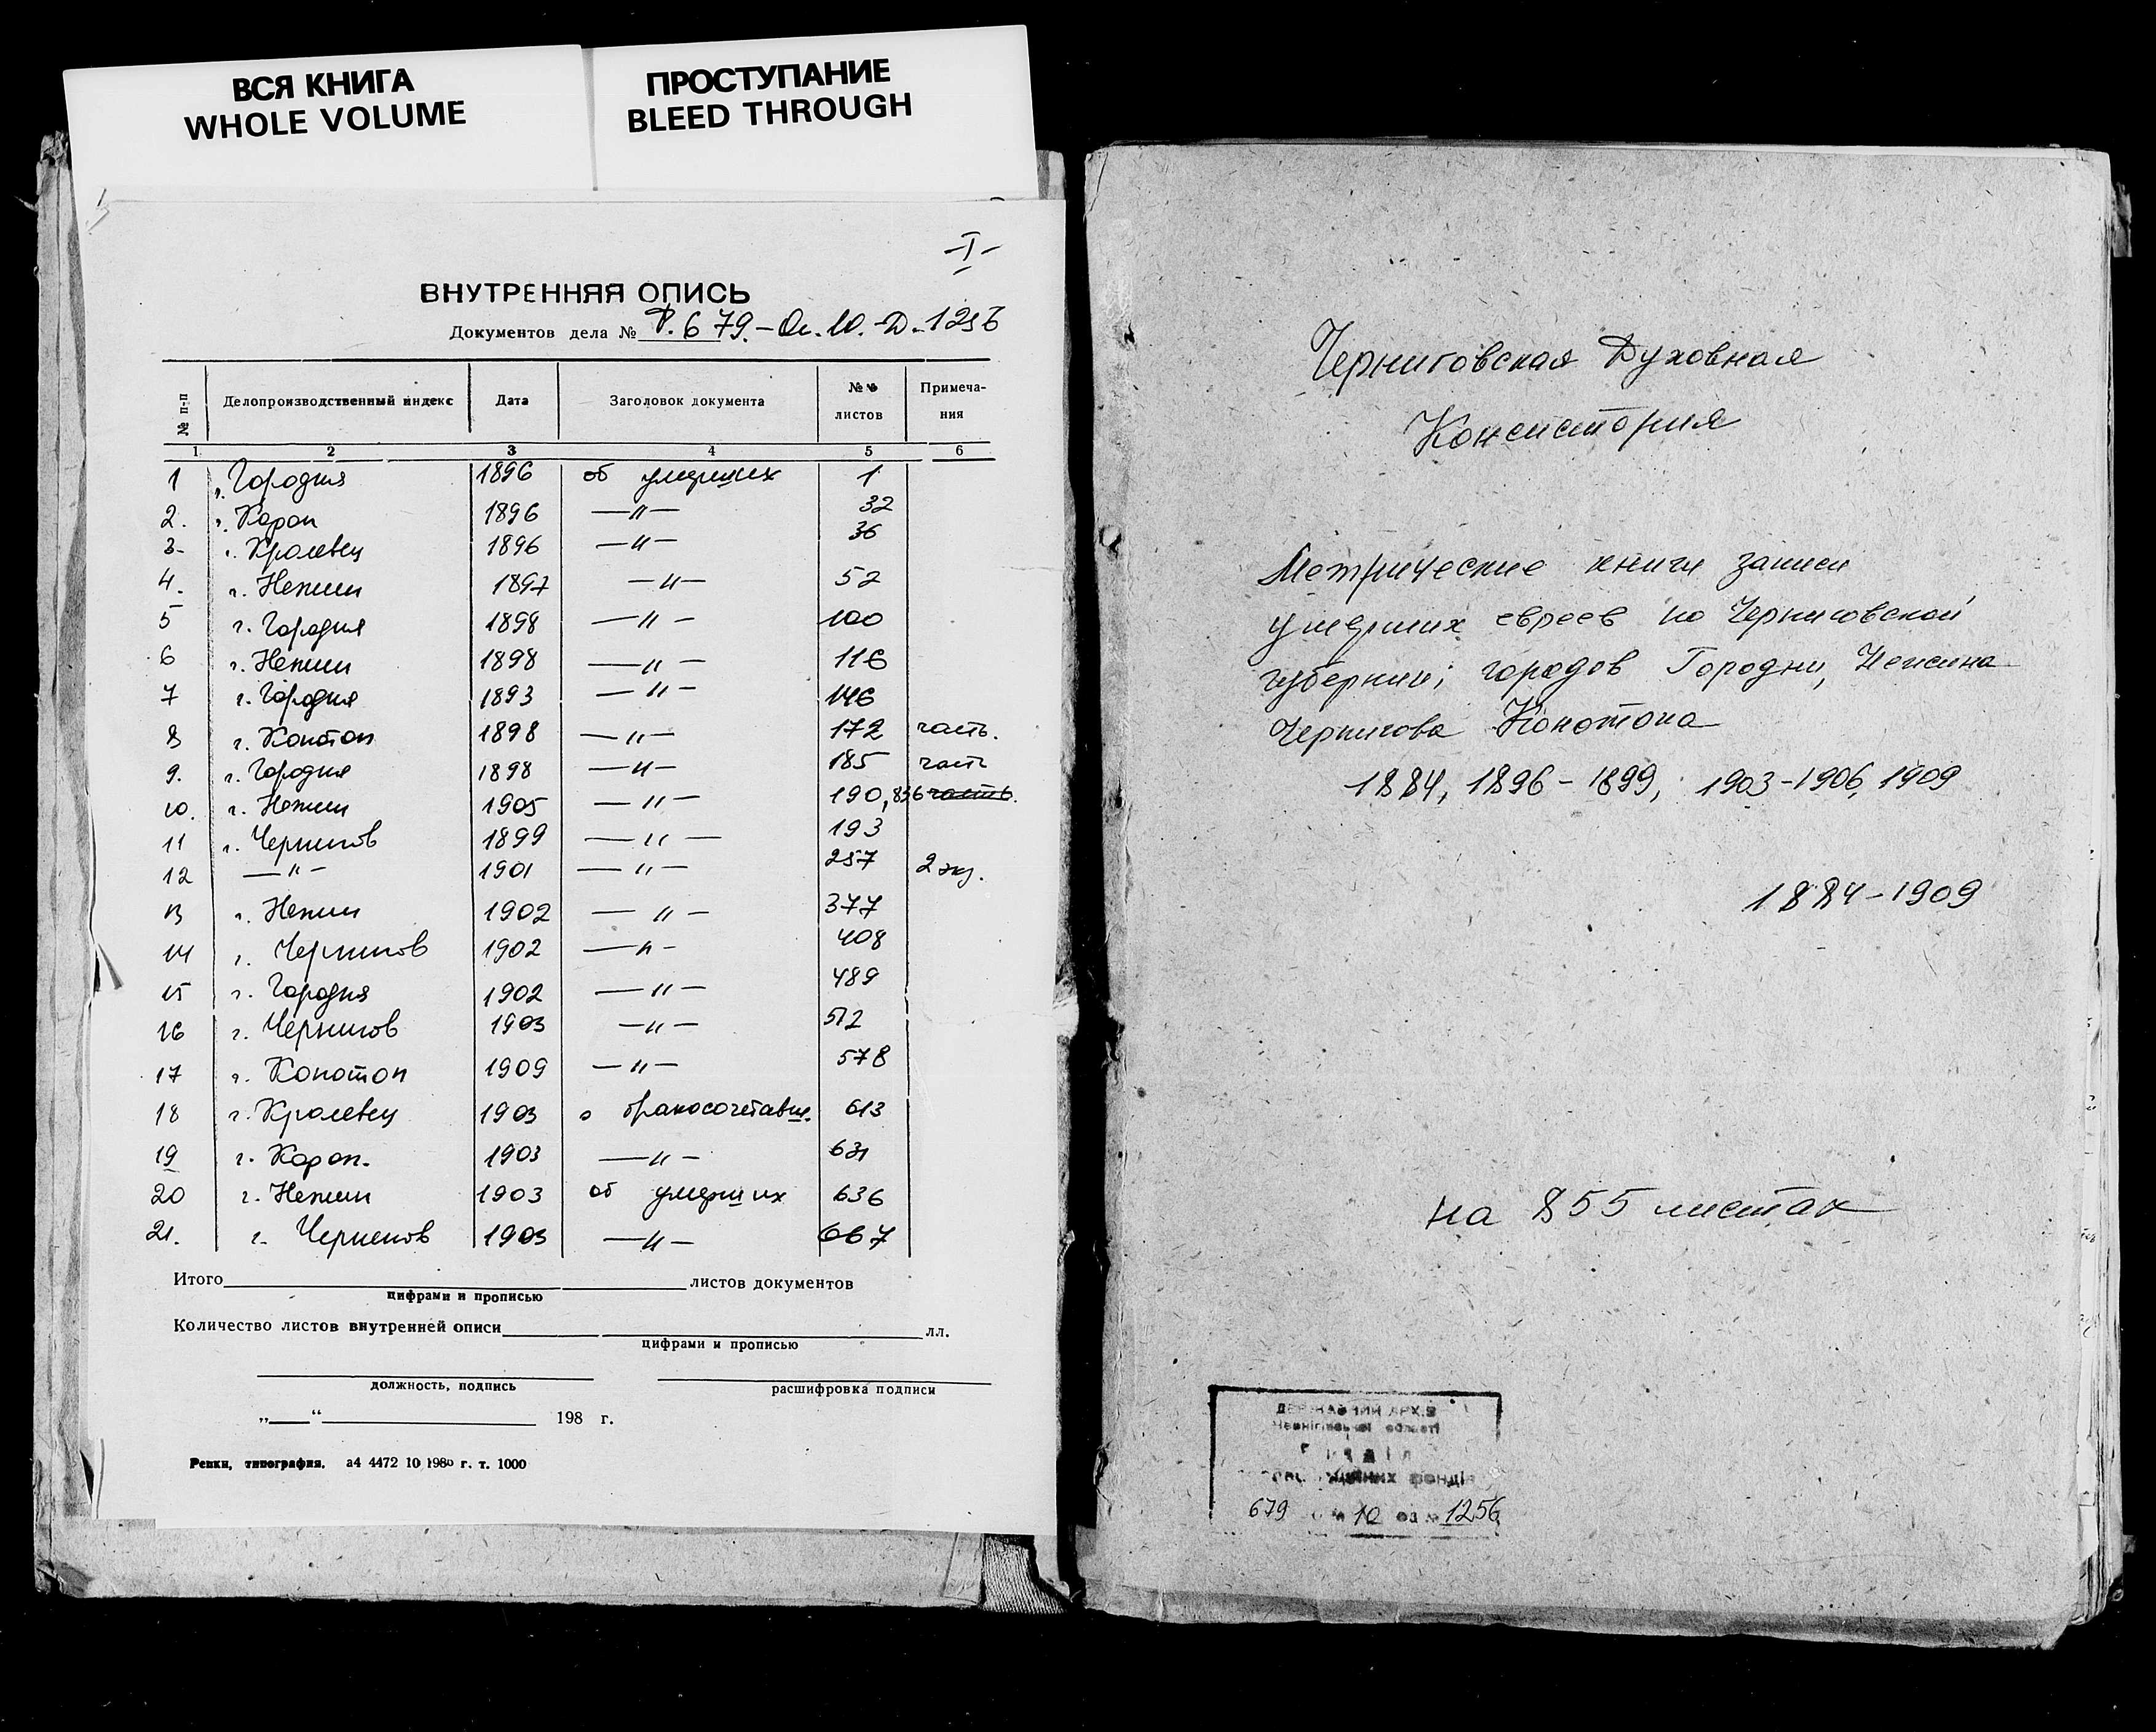 ВСЯ КНИГА
WHOLE VOLUME
ПРОСТУПАНИЕ
BLEED THROUGH
-I-
ВНУТРЕННЯЯ ОПИСЬ
Документов дела № Ф. 679.-Оп.10.-Д-1256
№ п-п Делопроизводственный индекс Дата Заголовок документа №№ листов Примеча-ния
1 2 3 4 5 6
1 г. Городня 1896 об умерших 1
2. г. Короп 1896 —"— 32
3- г. Кролевец 1896 —"— 36
4. г. Нежин 1897 —"— 52
5 г. Городня 1898 —"— 100
6 г. Нежин 1898 —"— 116
7 г. Городня 1893 —"— 146
8 г. Конотоп 1898 —"— 172 часть.
9. г. Городня 1898 —"— 185 часть
10. г. Нежин 1905 —"— 190, 856 часть.
11 г. Чернигов 1899 —"— 193
12 —"— 1901 —"— 257 2 экз.
13 г. Нежин 1902 —"— 377
14 г. Чернигов 1902 —"— 408
15 г. Городня 1902 —"— 489
16 г. Чернигов 1903 —"— 512
17 г. Конотоп 1909 —"— 578
18 г. Кролевец 1903 о бракосочетавш. 613
19 г. Короп. 1903 —"— 631
20 г. Нежин 1903 об умерших 636
21. г. Чернигов 1903 —"— 667
Итого листов документов
цифрами и прописью
Количество листов внутренней описи лл.
цифрами и прописью
должность, подпись расшифровка подписи
„ “ 198 г.
Репки, типография. а4 4472 10 1980 г. т. 1000
Черниговская Духовная
Консистория
Метрические книги записи
умерших евреев по Черниговской
губернии; городов Городни, Нежина
Чернигова Конотопа
1884, 1896-1899, 1903-1906, 1909
1884-1909
на 855 листах
ДЕРЖАВНИЙ АРХІВ
Чернігівської області
Відділ
фондів
679 10 1256